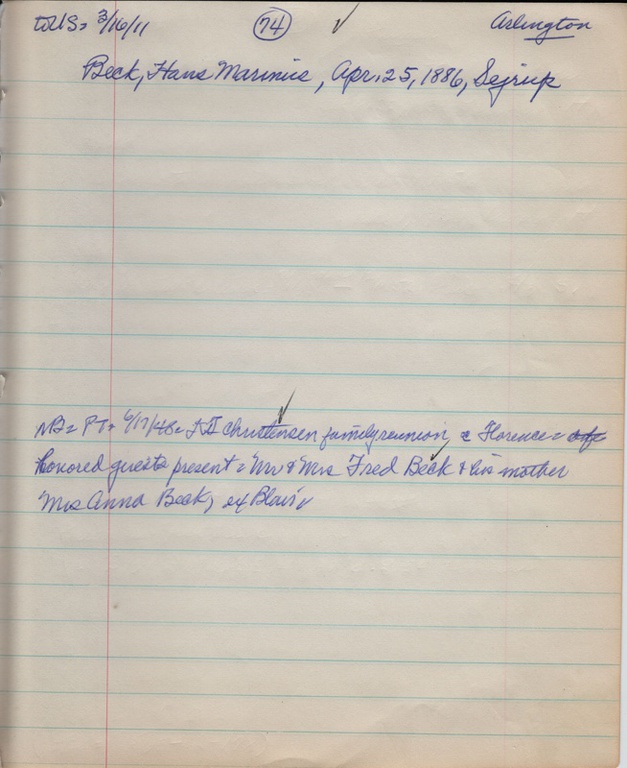 toUS= 3/16/11 74 ✓ Arlington
Beck, Hans Marinus, Apr. 25, 1886, Sejrup
NB= PT= 6/17/48= Christensen family reunion, @ Florence=
honored guests present = Mr & Mrs Fred Beck & his mother
Mrs Anna Beck, of Blair ✓